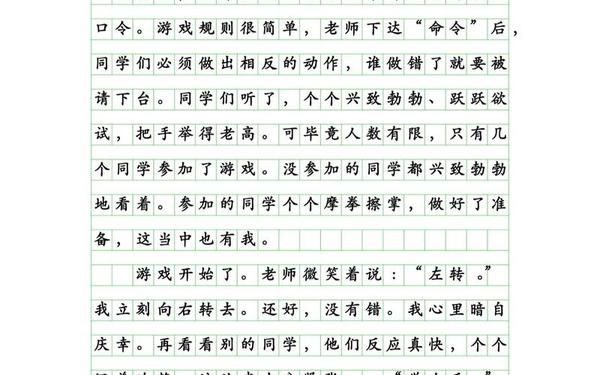 口令。游戏规则很简单，老师下达“命令”后，
同学们必须做出相反的动作，谁做错了就要被
请下台。同学们听了，个个兴致勃勃、跃跃欲
试，把手举得老高。可毕竟人数有限，只有几
个同学参加了游戏。没参加的同学都兴致勃勃
地看着。参加的同学个个摩拳擦掌，做好了准
备，这当中也有我。
游戏开始了。老师微笑着说：“左转。”
我立刻向右转去。还好，没有错。我心里暗自
庆幸。再看看别的同学，他们反应真快，个个